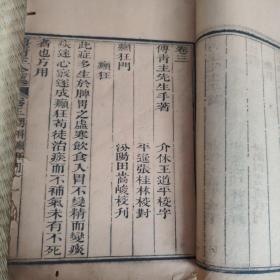 卷三
傅青主先生手著
介休王道平校字
平遙張桂林校對
汾陽田嵩峻校刊
癲狂門
癲狂
此症多生於脾胃之虛寒飲食入胃不變精而變痰
痰迷心竅遂成癲狂苟徒治痰而不補氣未有不死
者也方用